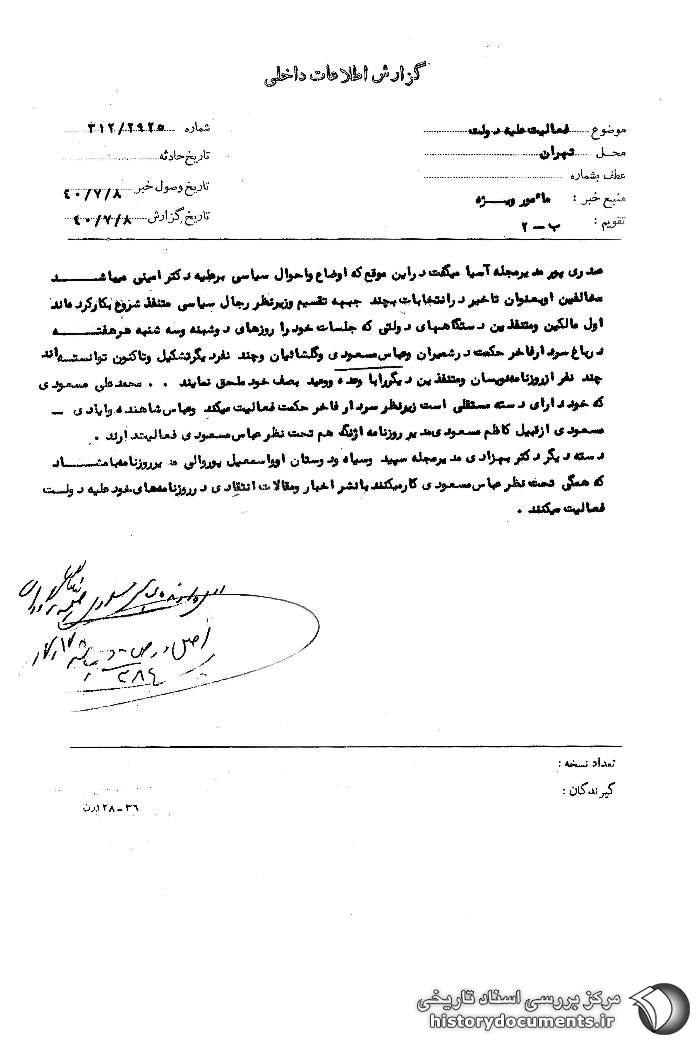 گزارش اطلاعات داخلی
موضوع فعالیت علیه دولت
شماره ۳۱۲/۲۹۲۵
محل تهران
تاریخ حادثه
عطف بشماره
تاریخ وصول خبر ۴۰/۷/۸
منبع خبر : مأمور ویژه
تاریخ گزارش ۴۰/۷/۸
تقویم : ب-۲
صدری پور مدیرمجله آسیا میگفت دراین موقع که اوضاع واحوال سیاسی برعلیه دکتر امینی میباشد
مخالفین اوبعنوان تاخیر درانتخابات بچند جبهه تقسیم وزیرنظر رجال سیاسی متنفذ شروع بکارکرده‌اند
اول مالکین ومتنفذین دستگاههای دولتی که جلسات خودرا روزهای دوشنبه وسه شنبه هرهفته
درباغ سردارفاخر حکمت درشمیران وعباس مسعودی وگلشائیان وچند نفردیگرتشکیل وتاکنون توانسته‌اند
چند نفر ازروزنامه‌نویسان ومتنفذین دیگررابا وعده ووعید بصف خود ملحق نمایند . . محمدعلی مسعودی
که خوددارای دسته مستقلی است زیرنظر سردار فاخر حکمت فعالیت میکند وعباس شاهنده وایادی -
مسعودی ازقبیل کاظم مسعودی‌مدیر روزنامه آژنگ هم تحت نظر عباس مسعودی فعالیت‌دارند .
دسته دیگر دکتر بهزادی مدیرمجله سپید وسیاه ودوستان اوواسمعیل پوروالی مدیرروزنامه‌بامشاد
که همگی تحت نظر عباس مسعودی کارمیکنند بانشر اخبار ومقالات انتقادی درروزنامه‌های خود علیه دولت
فعالیت میکنند .
تعداد نسخه :
گیرندگان :
۳۶-۱۲۸
مرکز بررسی اسناد تاریخی
historydocuments.ir